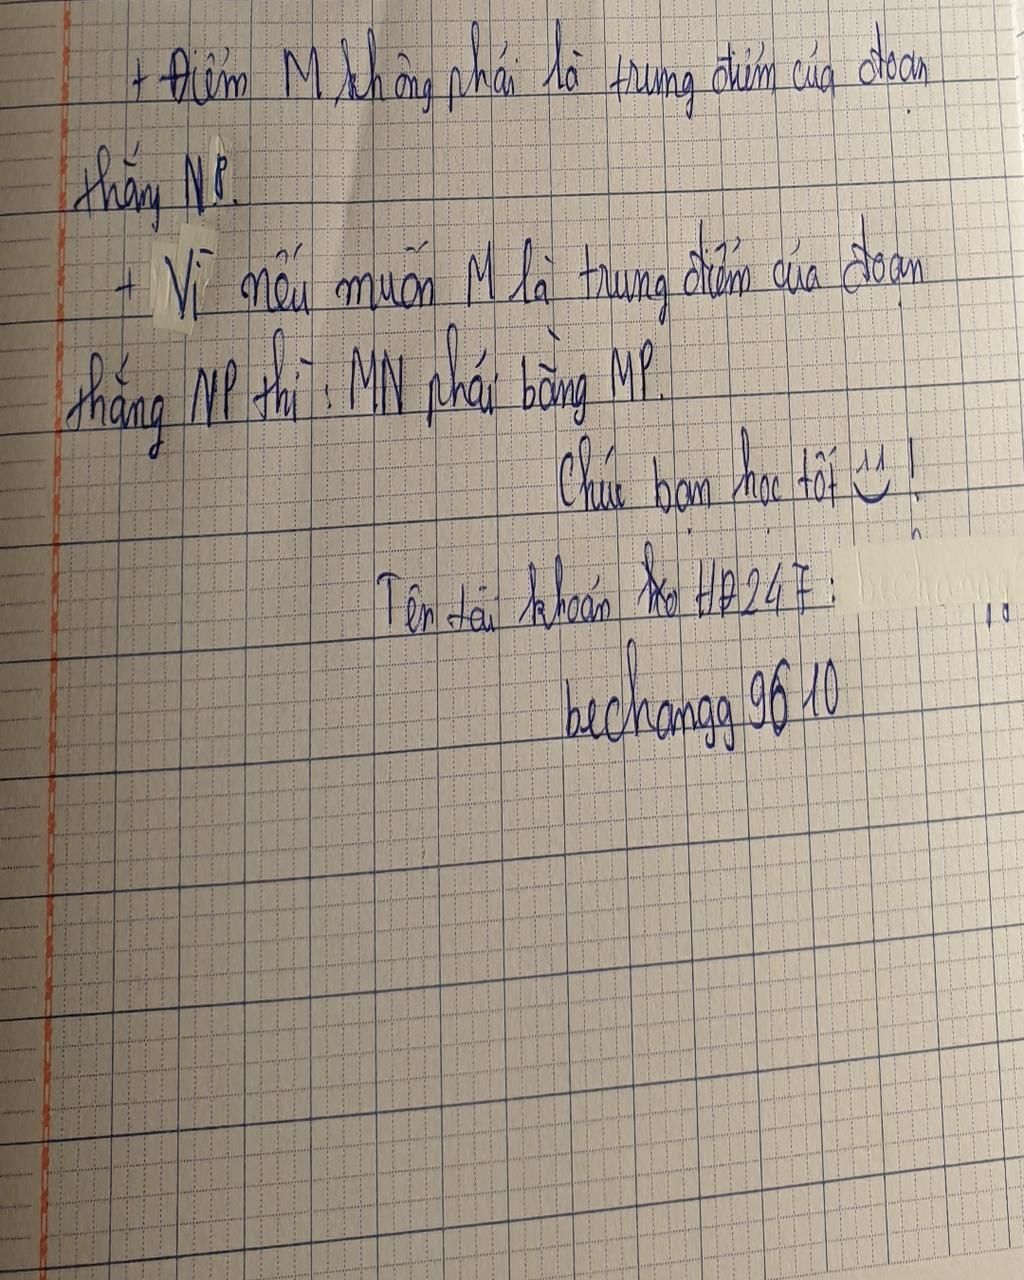 + Điểm M không phải là trung điểm của đoạn
thẳng NP.
+ Vì nếu muốn M là trung điểm của đoạn
thẳng NP thì : MN phải bằng MP.
Chúc bạn học tốt !
Tên tài khoản HĐ247 :
bechangg9610